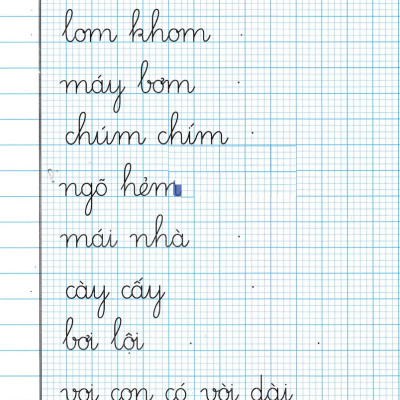 lom khom
máy bơm
chúm chím
ngõ hẻm
mái nhà
cày cấy
bơi lội
voi con có vòi dài